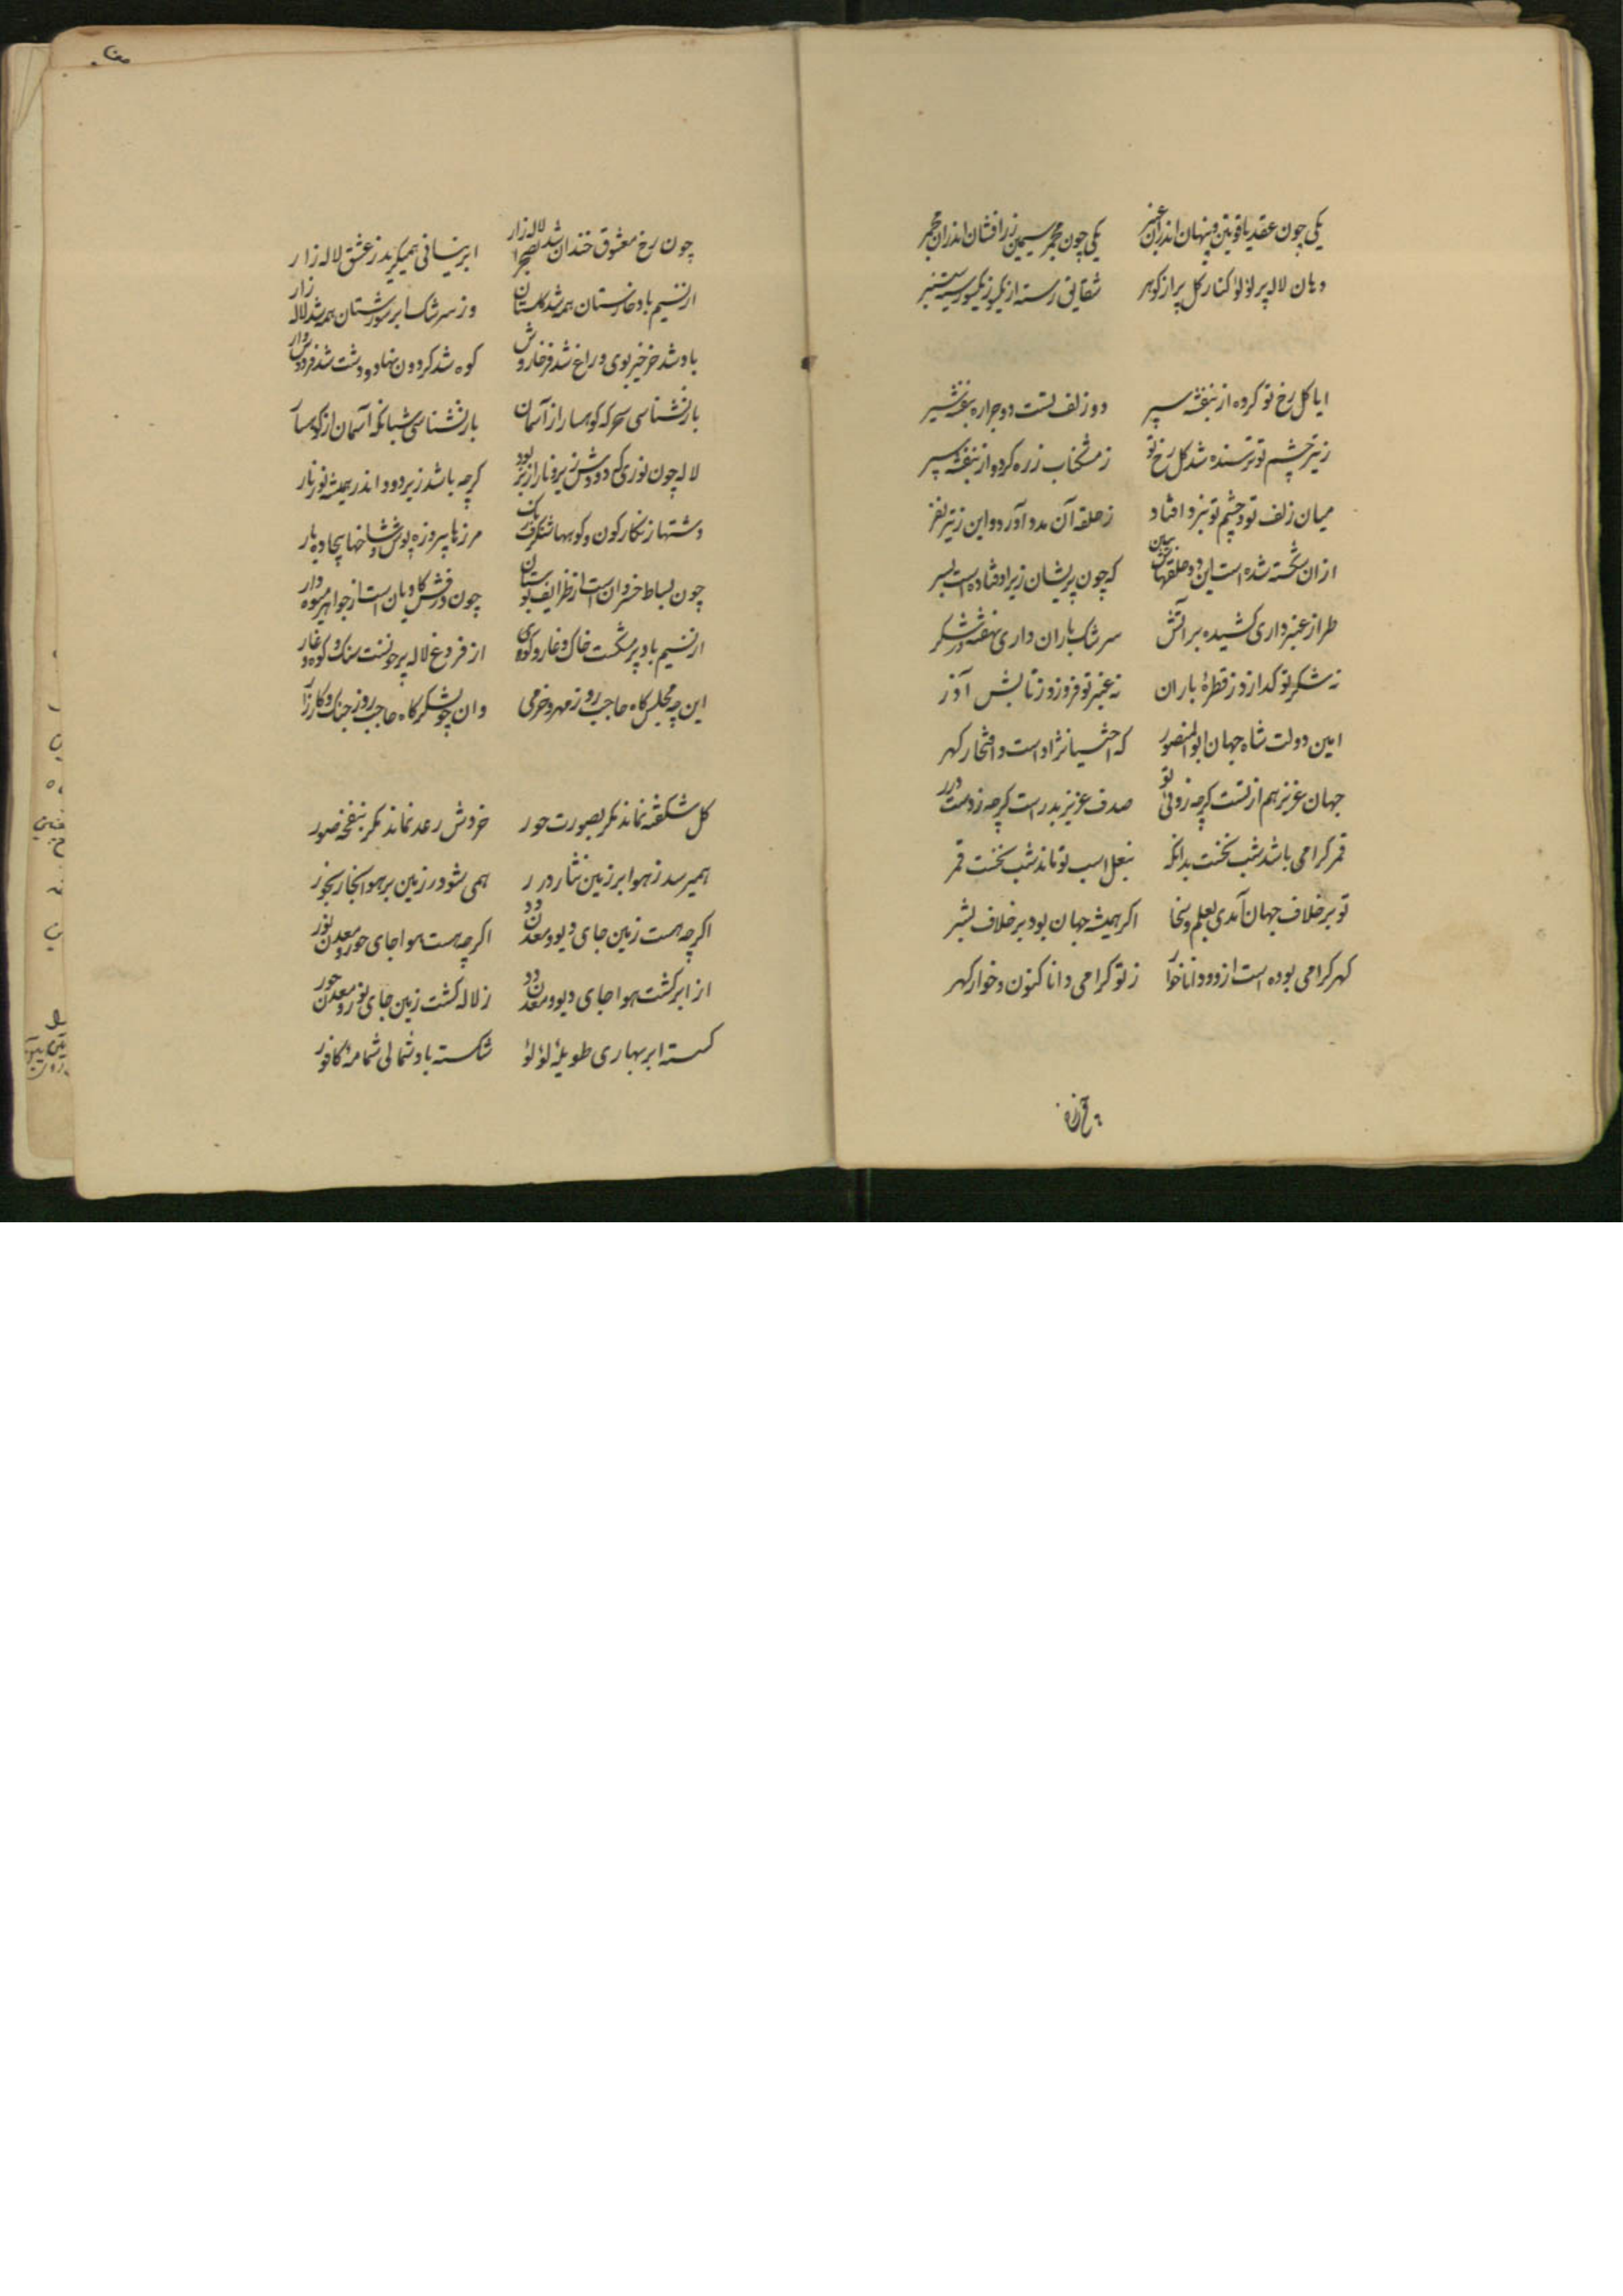 یکی چون عقد یاقوتین و پنهان اندران عنبر یکی چون مجمر سیمین زر افشان اندران مجمر
دهان لاله پر لؤلؤ کنار کل پر از کوهر شقایق رسته از یکسو ز یکسو رسته سیسنبر
ایا کل رخ تو کرده از بنفشه سپر دو زلف تست دو جراره بنفشه
ز تیر چشم تو ترسنده شد کل رخ تو ز مشکناب زره کرد و از بنفشه سپر
میان زلف تو و چشم تو نبرد افتاد ز حلقه آن مدد آورد و این ز تیر نفر
از ان شکسته شده است این دو حلقهاش ببین که چون پریشان زیر اوفتاده است بسر
طراز عنبر داری کشیده بر آتش سرشک باران داری نهفته در شکر
نه شکر تو کدازد ز قطرهٔ باران نه عنبر تو فروزد ز تابش آذر
امین دولت شاه جهان ابوالمنصور که اختیار نژاد است و افتخار کهر
جهان عزیز هم از تست کرچه زوئی تو صدف عزیز بدر است کرچه زوست درر
قمر کرامی باشد بشب نجنت بدانکه بنعل اسب تو ماند شب نخست قمر
تو بر خلاف جهان آمدی بعلم و سخا اکر همیشه جهان بود بر خلاف بشر
کهر کرامی بوده است ازو و دانا خوار ز تو کرامی دانا کنون و خوار کهر
چون رخ معشوق خندان شد بصحرا لاله زار ابر نیسانی همیکرید ز عشق لاله زار
از نسیم باد خارستان همه شد کلستان وز سرشک ابر شورستان همه شد لاله زار
باد شد خرخیز بوی و راغ شد فرخار وش کوه شد کردون نهاد و دشت شد فردوس وار
باز نشناسی سحرکه کوهسار از آسمان باز نشناسی شبانکه آسمان از کوهسار
لاله چون نوری که دودش زیر و نار از بر بود کرچه باشد زیر دود اندر همیشه نور نار
دشتها زنکار کون و کوهها شنکرف رنک مرزها پیروزه پوش و شاخها بیجاده بار
چون بساط خسروان است از ظرایف بوستان چون درفش کاویان است از جواهر میوه دار
از نسیم باد پر مشکست خاک و غار و کوی از فروغ لاله پر خونست سنک و کوه و غار
این چو مجلس کاه حاجب روز مهر و خرمی وان چو لشکرکاه حاجب روز جنک و کارزار
کل شکفته نماند مکر بصورت حور خروش رعد نماند مکر بنفخه صور
همیرسد ز هوا بر زمین نثار درر همی شود ز زمین بر هوا بخار بخور
اکرچه هست زمین جای دیو و معدن دد اکرچه هست هوا جای حور و معدن نور
از ابر کشت هوا جای دیو و معدن دد ز لاله کشت زمین جای نور و معدن حور
کسسته ابر بهاری طویلهٔ لؤلؤ شکسته باد شمالی شمامهٔ کافور